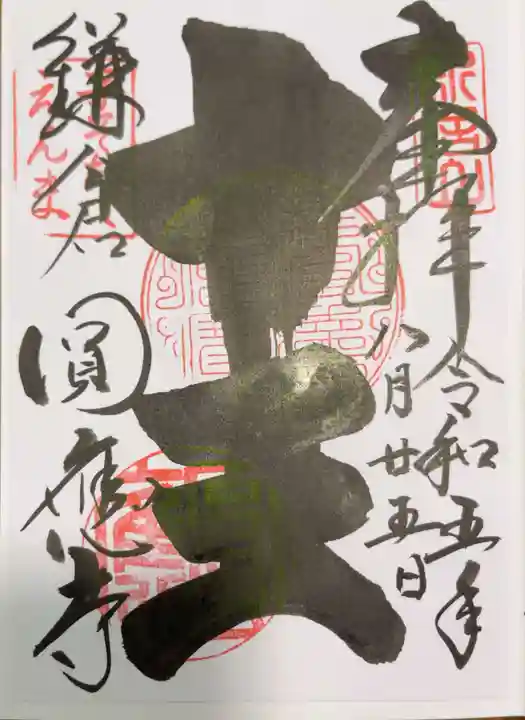 奉拝
令和五年
八月廿五日
十王
鎌倉
圓應寺
えんま